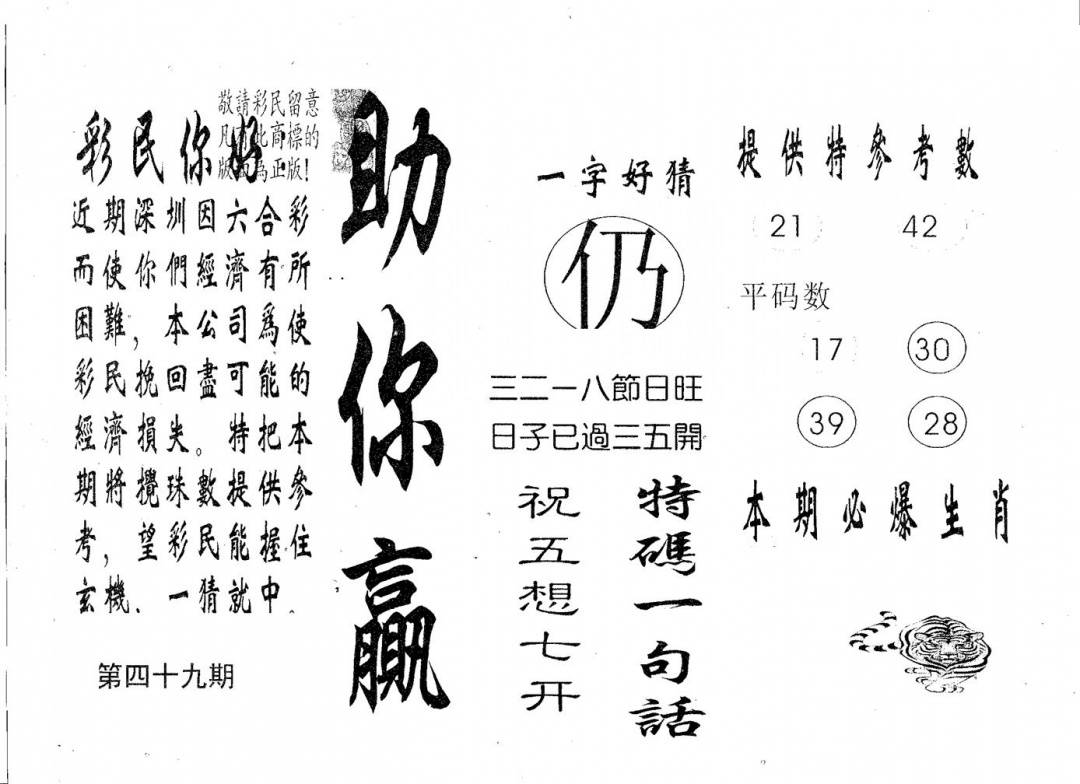 敬請彩民留意
凡 此商標的
版 為正版!
彩民你好
近期深圳因六合彩
而使你們經濟有所
困難,本公司爲使
彩民挽回盡可能的
經濟損失。特把本
期將攪珠數提供參
考,望彩民能握住
玄機.一猜就中.
第四十九期
助你贏
一字好猜
仍
三二一八節日旺
日子已過三五開
特碼一句話
祝五想七开
提供特參考數
21 42
平码数
17 30
39 28
本期必爆生肖